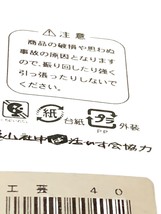 ⚠注意
商品の破損や思わぬ
事故の原因となります
ので、振り回したり強く
引っ張ったりしないで
ください。
紙 台紙 プラ 外装
PP
協力
工芸 40